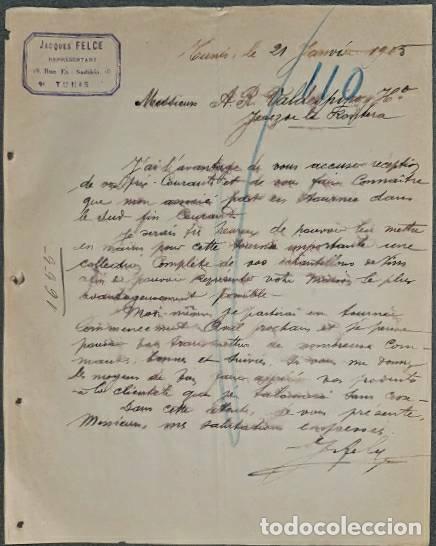 JACQUES FELCE
REPRÉSENTANT
TUNIS
Tunis, le 21 Janvier 1905
110
Messieurs A. R. Valdespino y Hº
Jerez de la Frontera
J'ai l'avantage de vous accuser réception
de vos Prix-Courants et de vous faire connaître
que mon associé part en tournée dans
le Sud fin courant
Je serais fis heureux de pouvoir lui mettre
en mains pour cette tournée importante une
collection complète de vos échantillons
afin de pouvoir représenter votre Maison le plus
avantageusement possible
1655
Moi-même je partirai en tournée
commencement Avril prochain et je pense
de nombreuses com-
mandes, bonnes et suivies. Si vous me donnez
les moyens de vos produits
à la clientèle que je
Dans cette attente, je vous présente,
Messieurs, mes salutations empressées
todocoleccion.net